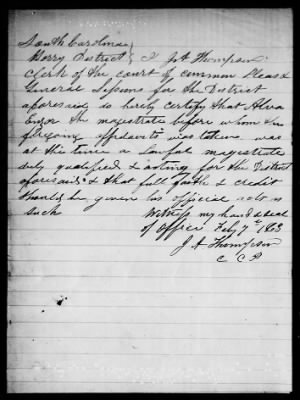 South Carolina
Horry District } I J A Thompson
Clerk of the court of common Pleas &
General Sessions for the District
aforesaid do hereby certify that Alva
Enzor the magistrate before whom the
foregoing affidavit was taken was
at the time a lawful magistrate
duly qualified & acting for the District
aforesaid & that full faith & credit
should be given his official acts as
such Witness my hand & seal
of office Feby 7th 1863
J A Thompson
C C P